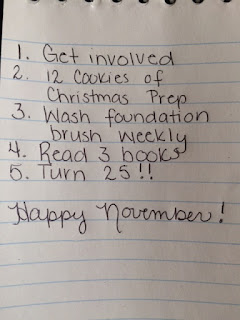 1. Get involved
2. 12 Cookies of
Christmas Prep
3. Wash foundation
brush weekly
4. Read 3 books
5. Turn 25!!
Happy November!